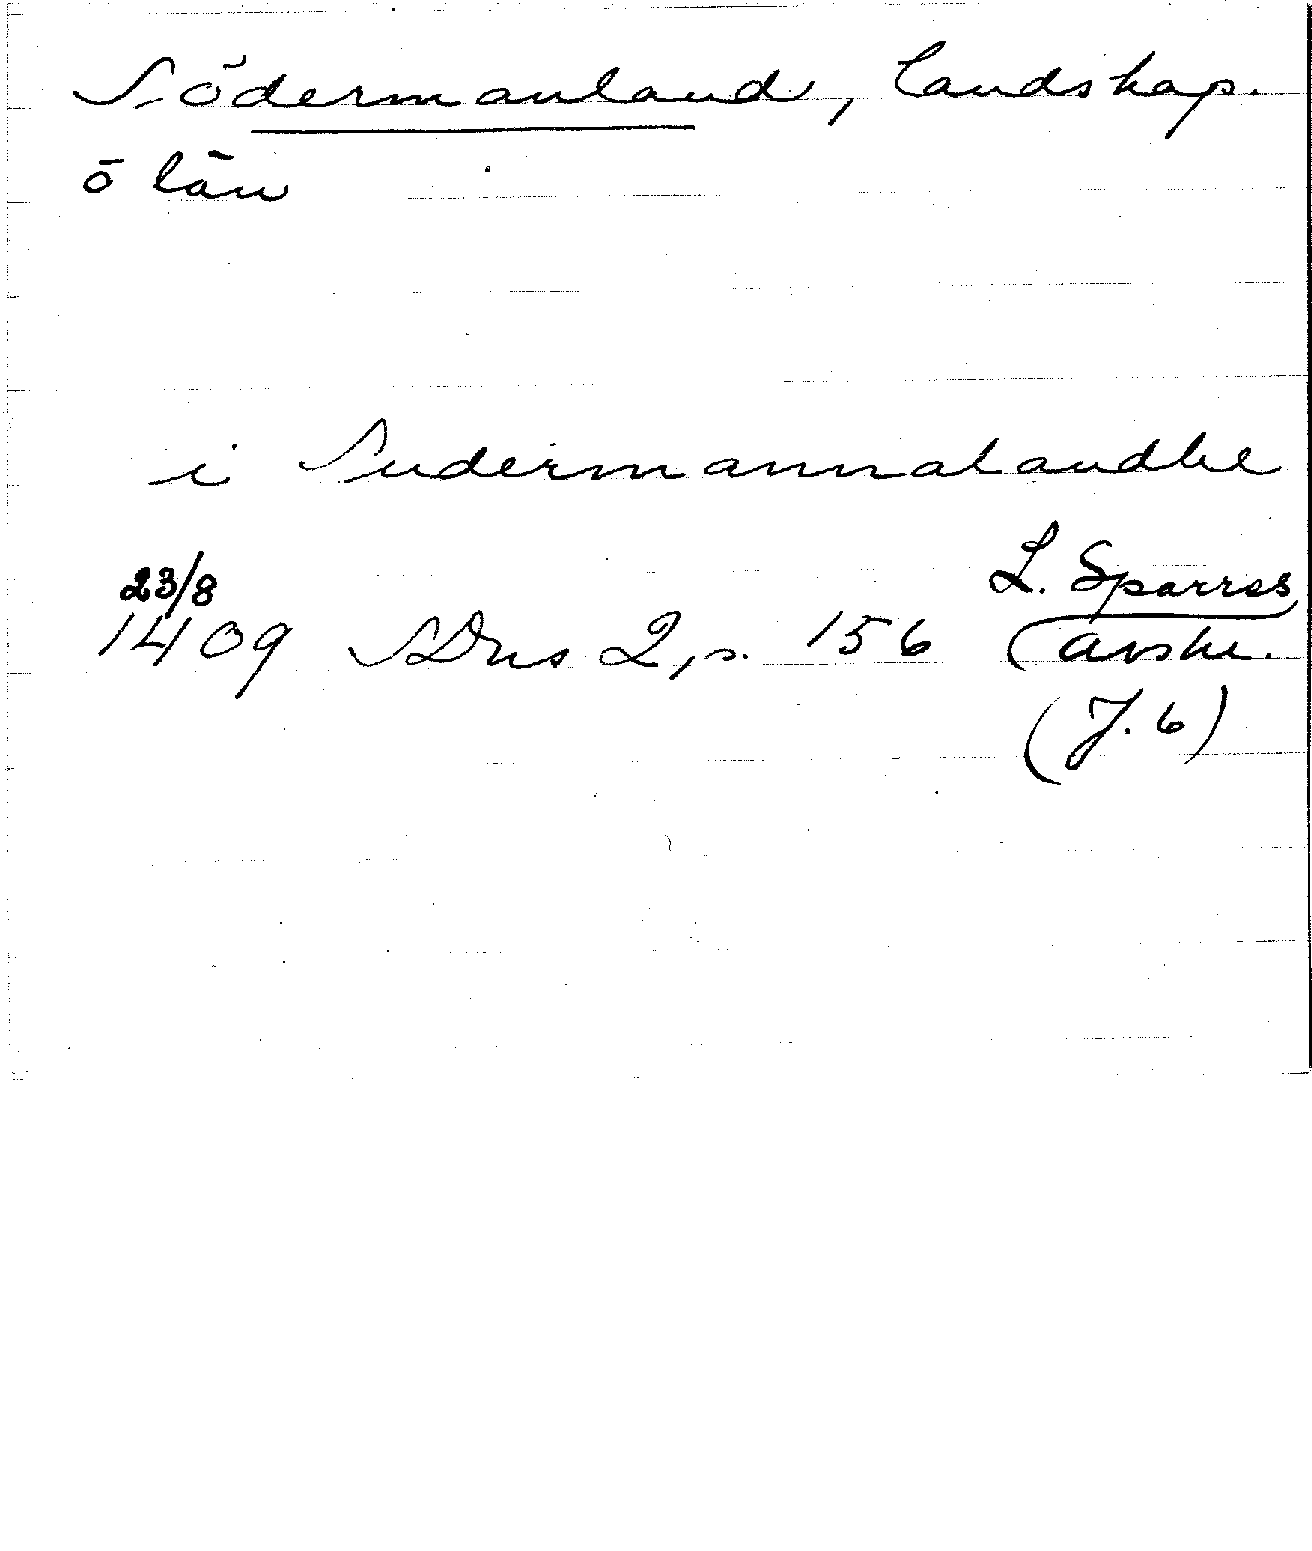 Södermanland, landskap.
o län
i Sudermannalandhe
23/8
1409 SDns 2, s. 156
L. Sparres
avskr.
(J. 6)